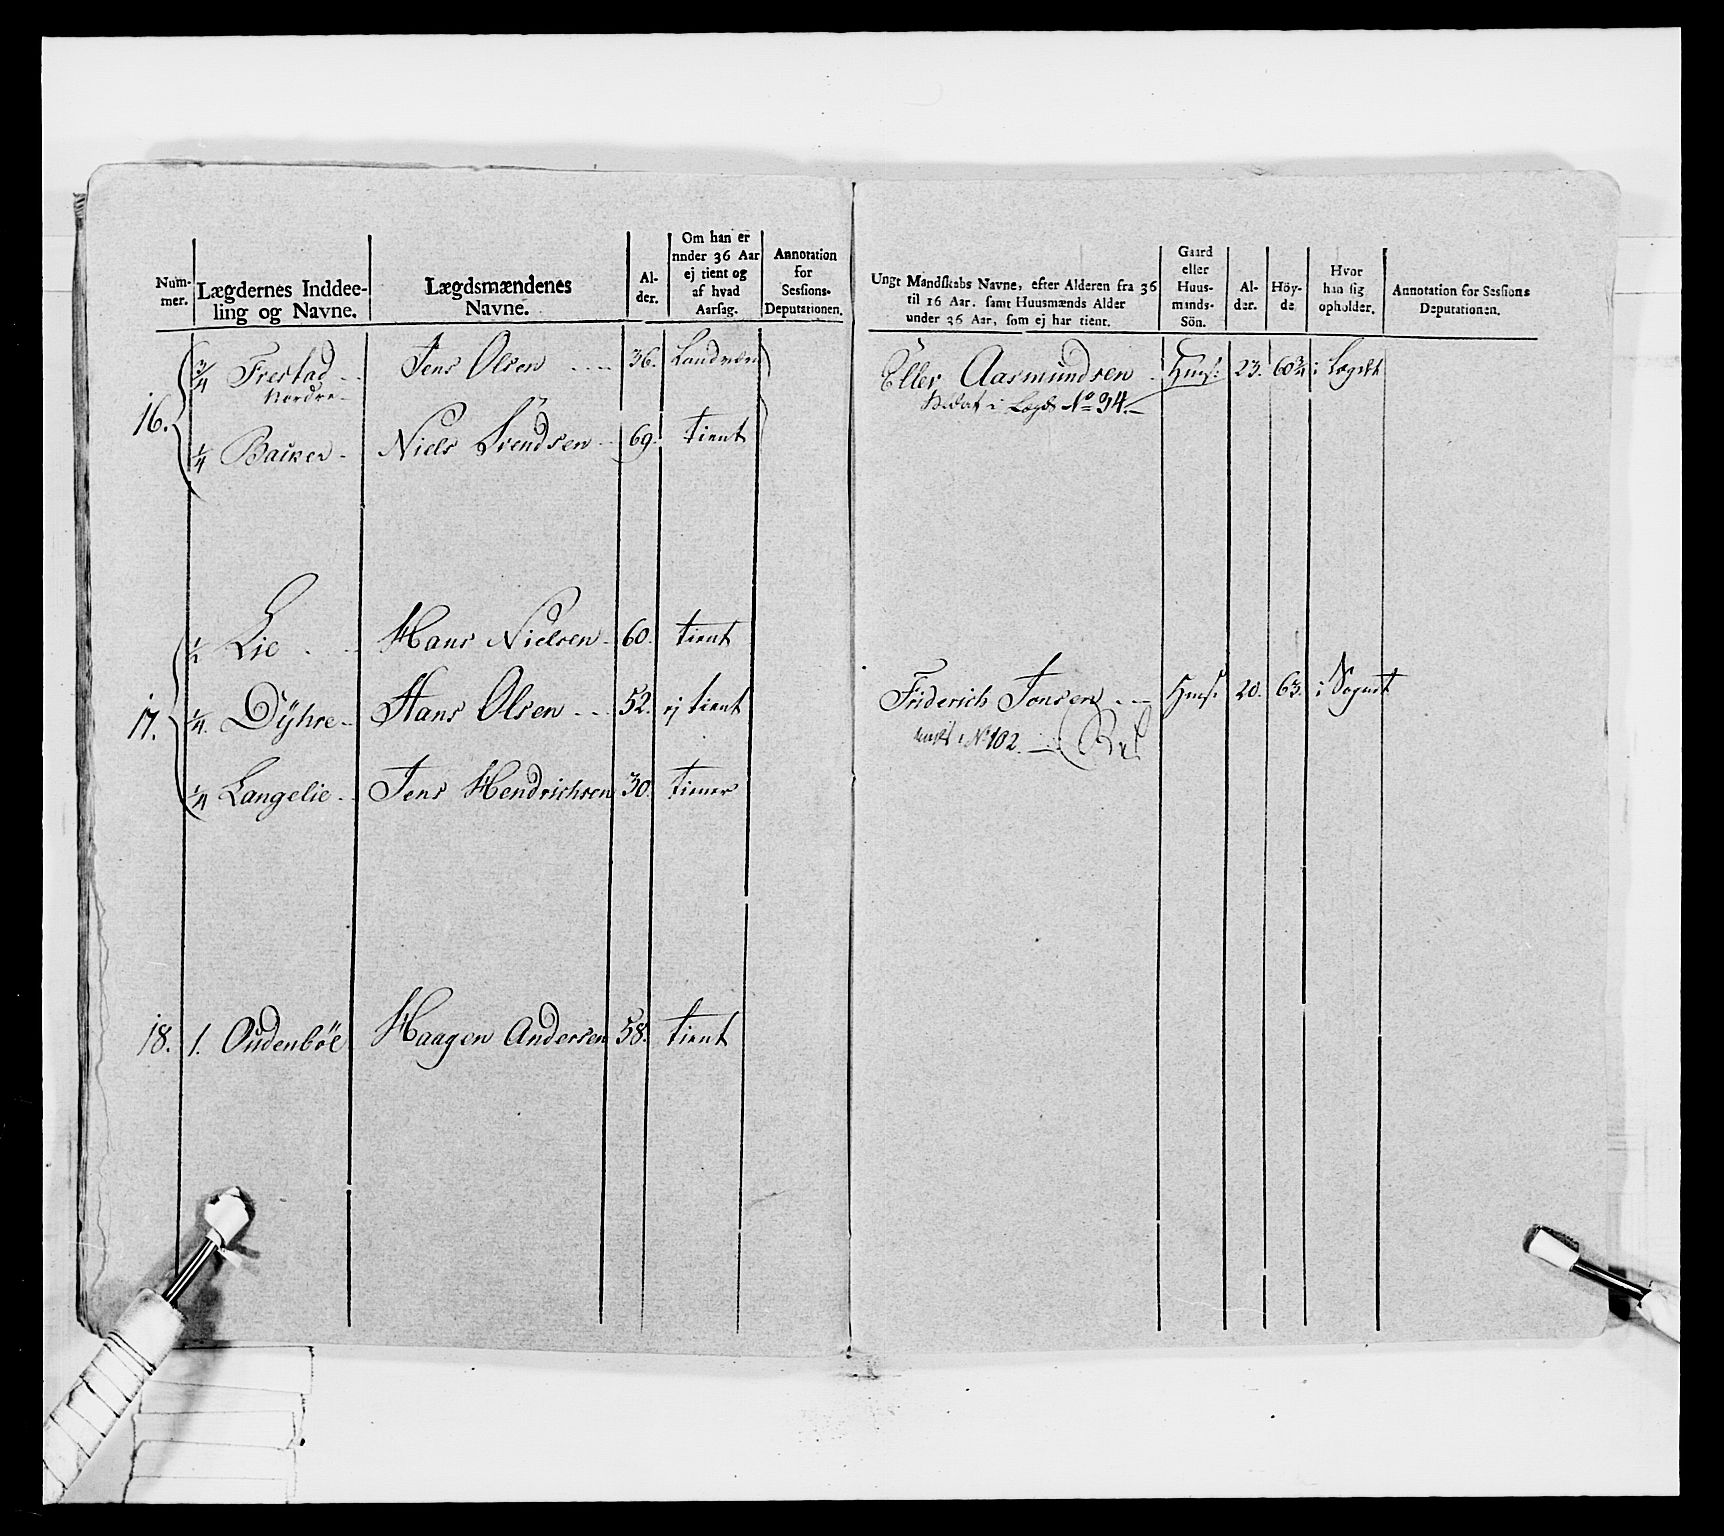 Num-
mer.
Lægdernes Inddee-
ling og Navne.
Lægdsmændenes
Navne.
Al-
der.
Om han er
nnder 36 Aar
ej tient og
af hvad
Aarsag.
Annotation
for
Sessions-
Deputationen.
16.
3/4 Frestad - - Jens Olsen - - - - 36. Landværn
Nordre -
1/4 Baaser - Niels Svendsen - - 69. tient
17.
1/2 Lie - - Hans Nielsen - 60. tient
1/4. Dÿhre - - Hans Olsen - - - 52. ej tient
1/4 Langelie - - Jens Hendrichsen 30. tiener
18. 1. Oudenböl Haagen Andersen 58. tient
Ungt Mandskabs Navne, efter Alderen fra 36
til 16 Aar, samt Huusmænds Alder
under 36 Aar, som ej har tient.
Gaard
eller
Huus-
mands-
Sön.
Al-
der.
Höy-
de
Hvor
han sig
opholder.
Annotation for Sessions
Deputationen.
Eller Aasmundsen - Hms: 23. 60 3/4 i Lægdet
i Lægd No 34. -
Friderich Jonsen - - - Hms: 20. 63. i Sognet
No 102. -